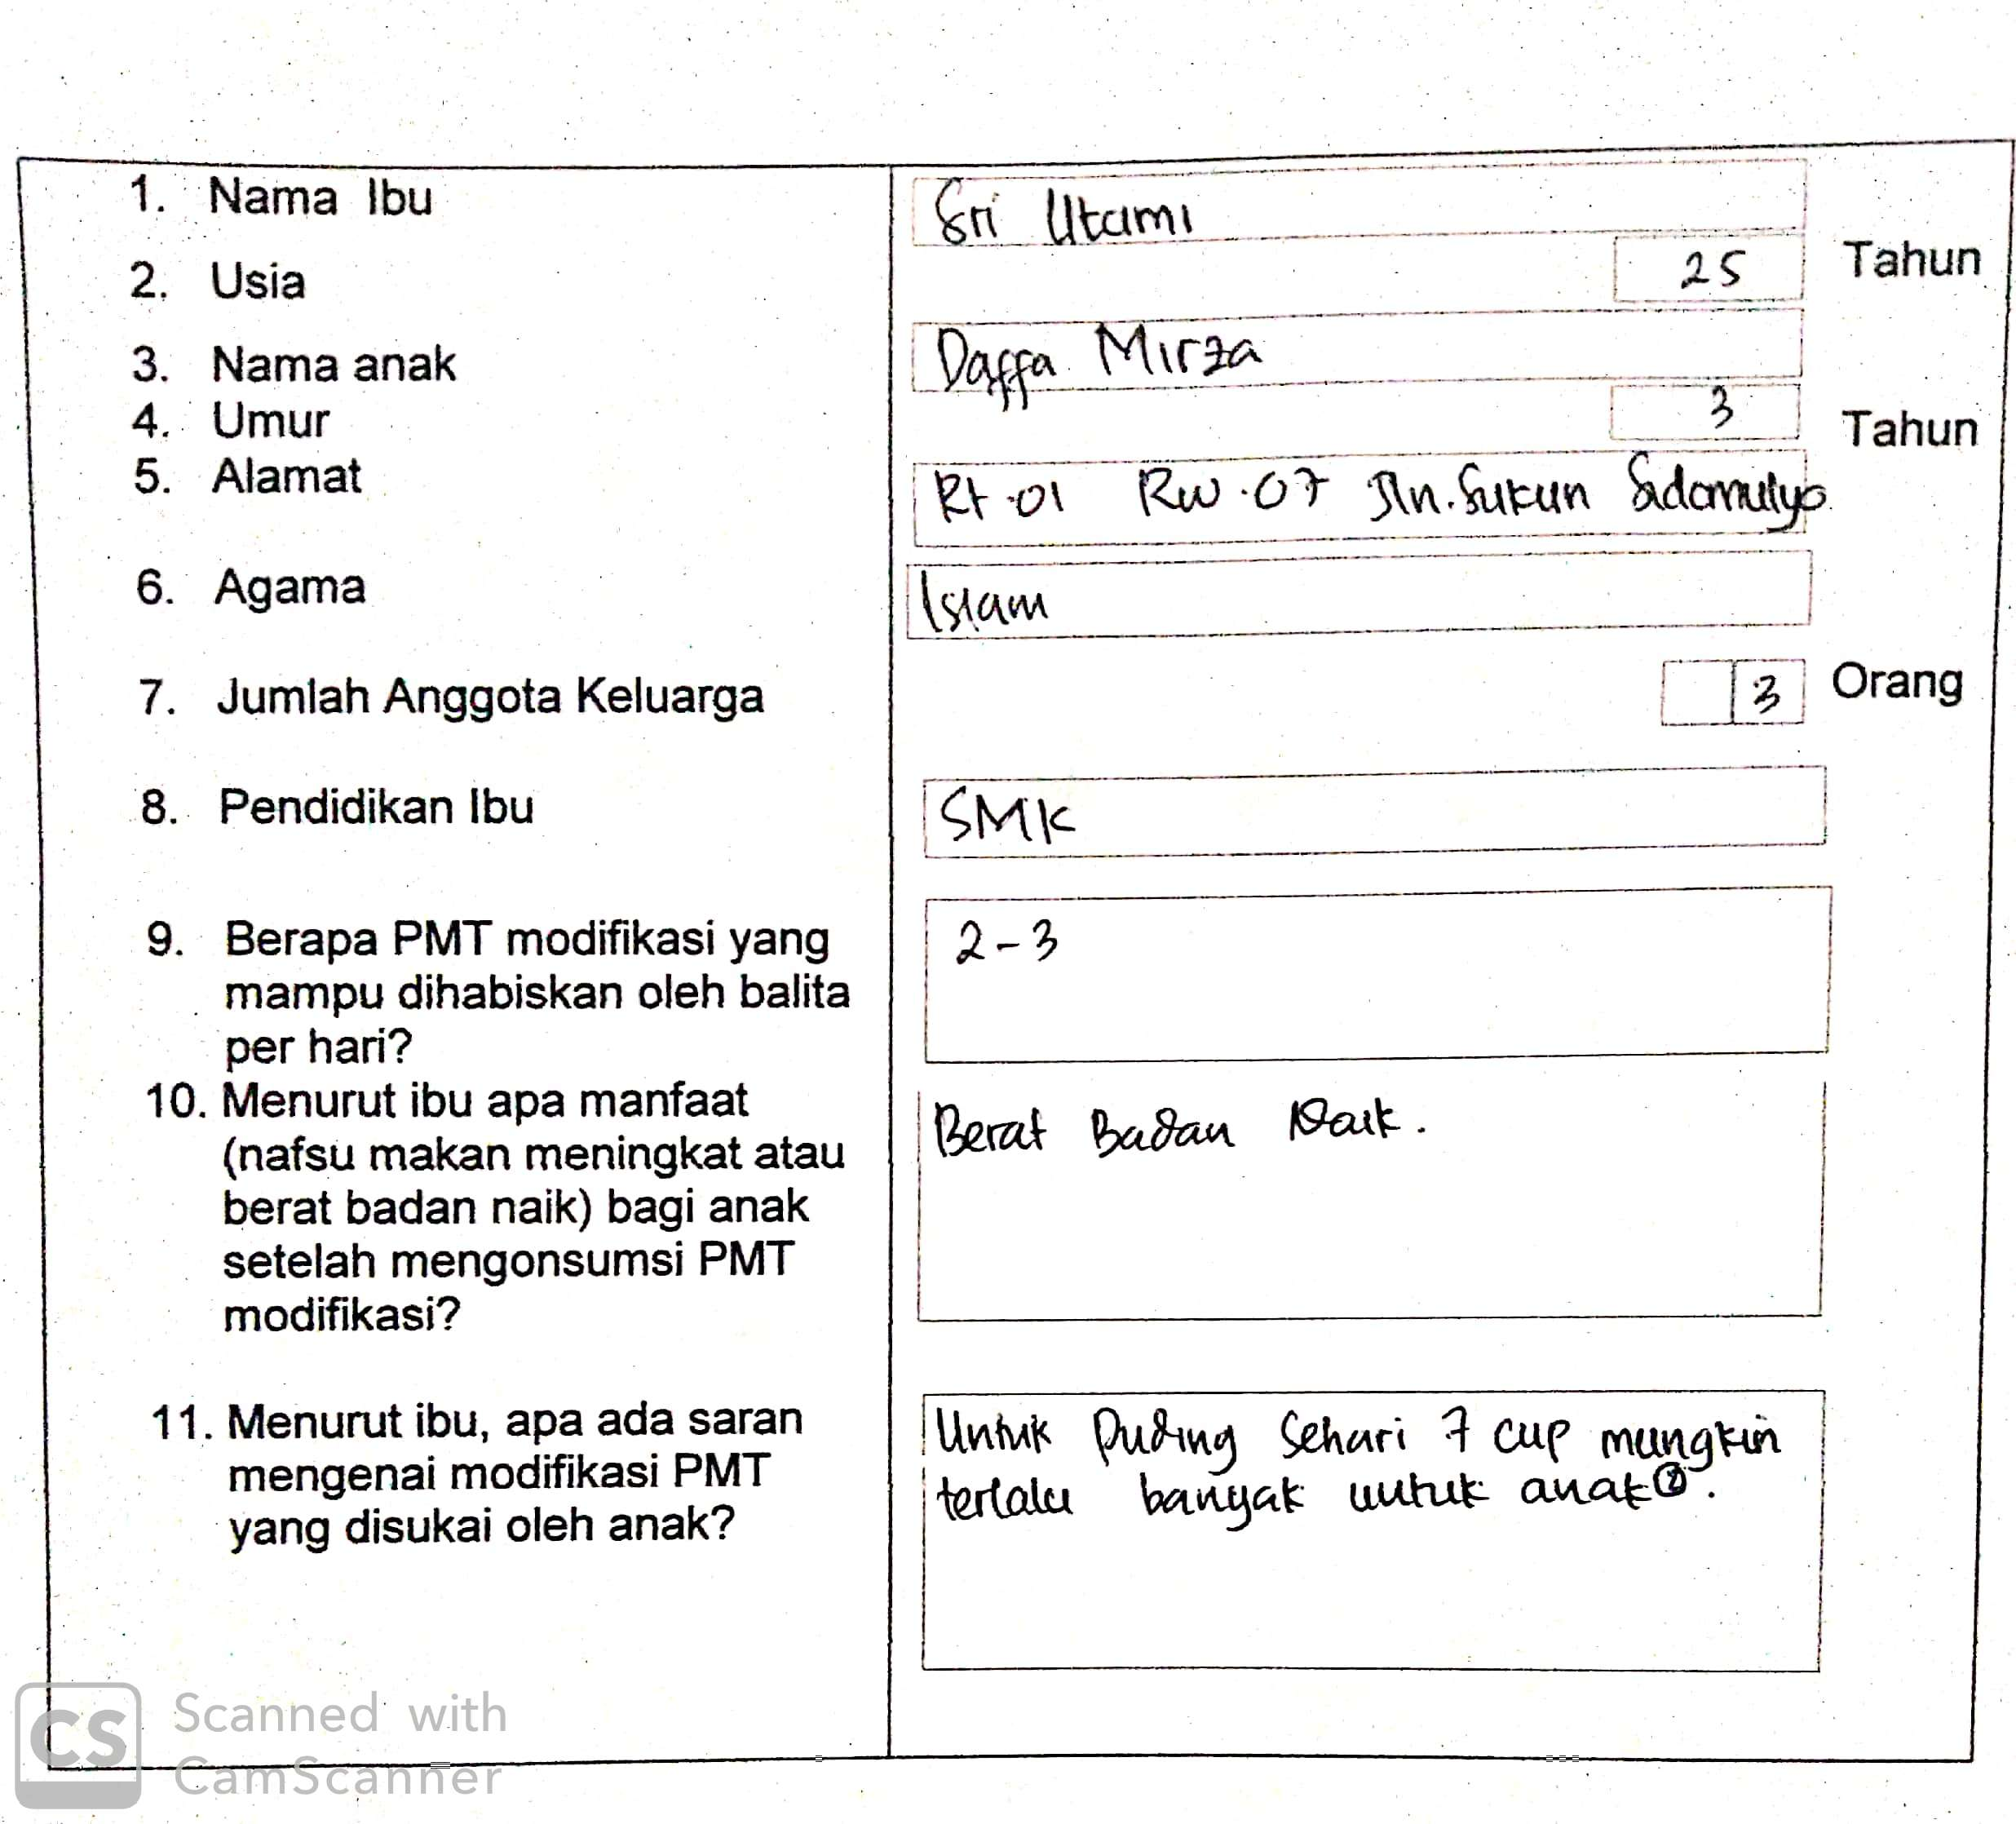 1. Nama Ibu
Sri Utami
2. Usia
25 Tahun
3. Nama anak
Daffa Mirza
4. Umur
3 Tahun
5. Alamat
Rt.01 Rw.07 Jln.Sukun Sidomulyo
6. Agama
Islam
7. Jumlah Anggota Keluarga
3 Orang
8. Pendidikan Ibu
SMK
9. Berapa PMT modifikasi yang
mampu dihabiskan oleh balita
per hari?
2-3
10. Menurut ibu apa manfaat
(nafsu makan meningkat atau
berat badan naik) bagi anak
setelah mengonsumsi PMT
modifikasi?
Berat Badan Naik.
11. Menurut ibu, apa ada saran
mengenai modifikasi PMT
yang disukai oleh anak?
Untuk Puding Sehari 7 cup mungkin
terlalu banyak untuk anak②.
CS Scanned with
CamScanner